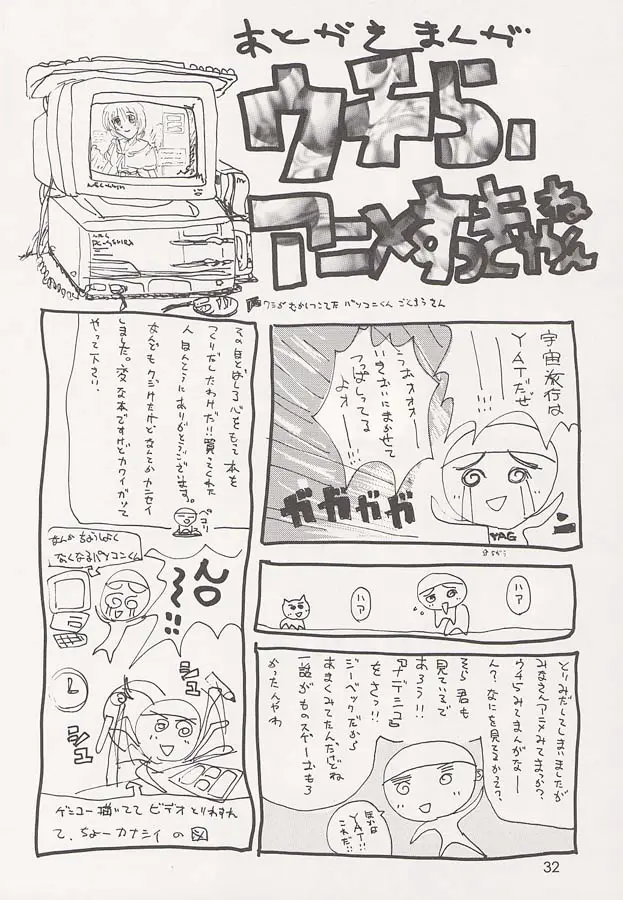 あとがきまんが
ウチら、
アニメすっきゃねん
宇宙旅行は
YATだぜ
うおォオオー
いきおいにまかせて
つっぱしってる
よオー
ガガガガ
YAG
ハァ
ハァ
とりみだしてしまいましたが
みなさんアニメみてまっか?
ウチらみてまんがなー
ん?なにを見てるかって?
そら君も
見ているで
あろう!!
アナデニコ
をさっ!!
ジーベックだから
あまくみてたんだけどね
一話がものスゲーおもろ
かったんやわ
ほかは
YAT!!
これだ!!
その日とばしる心をもって本を
つくりだしたわけだ!!買ってくれた
人ほんとうにありがとうございます。
なんどもクジけたけどなんてかカンセイ
しました。変な本ですけどカワイがって
やって下さい。
ペコリ
なんかちょうしよく
なくなるパソコンくん
シュ
シュ
ゲンコー描いてて ビデオ とりわすれ
て、ちょーカナシイ の図
32